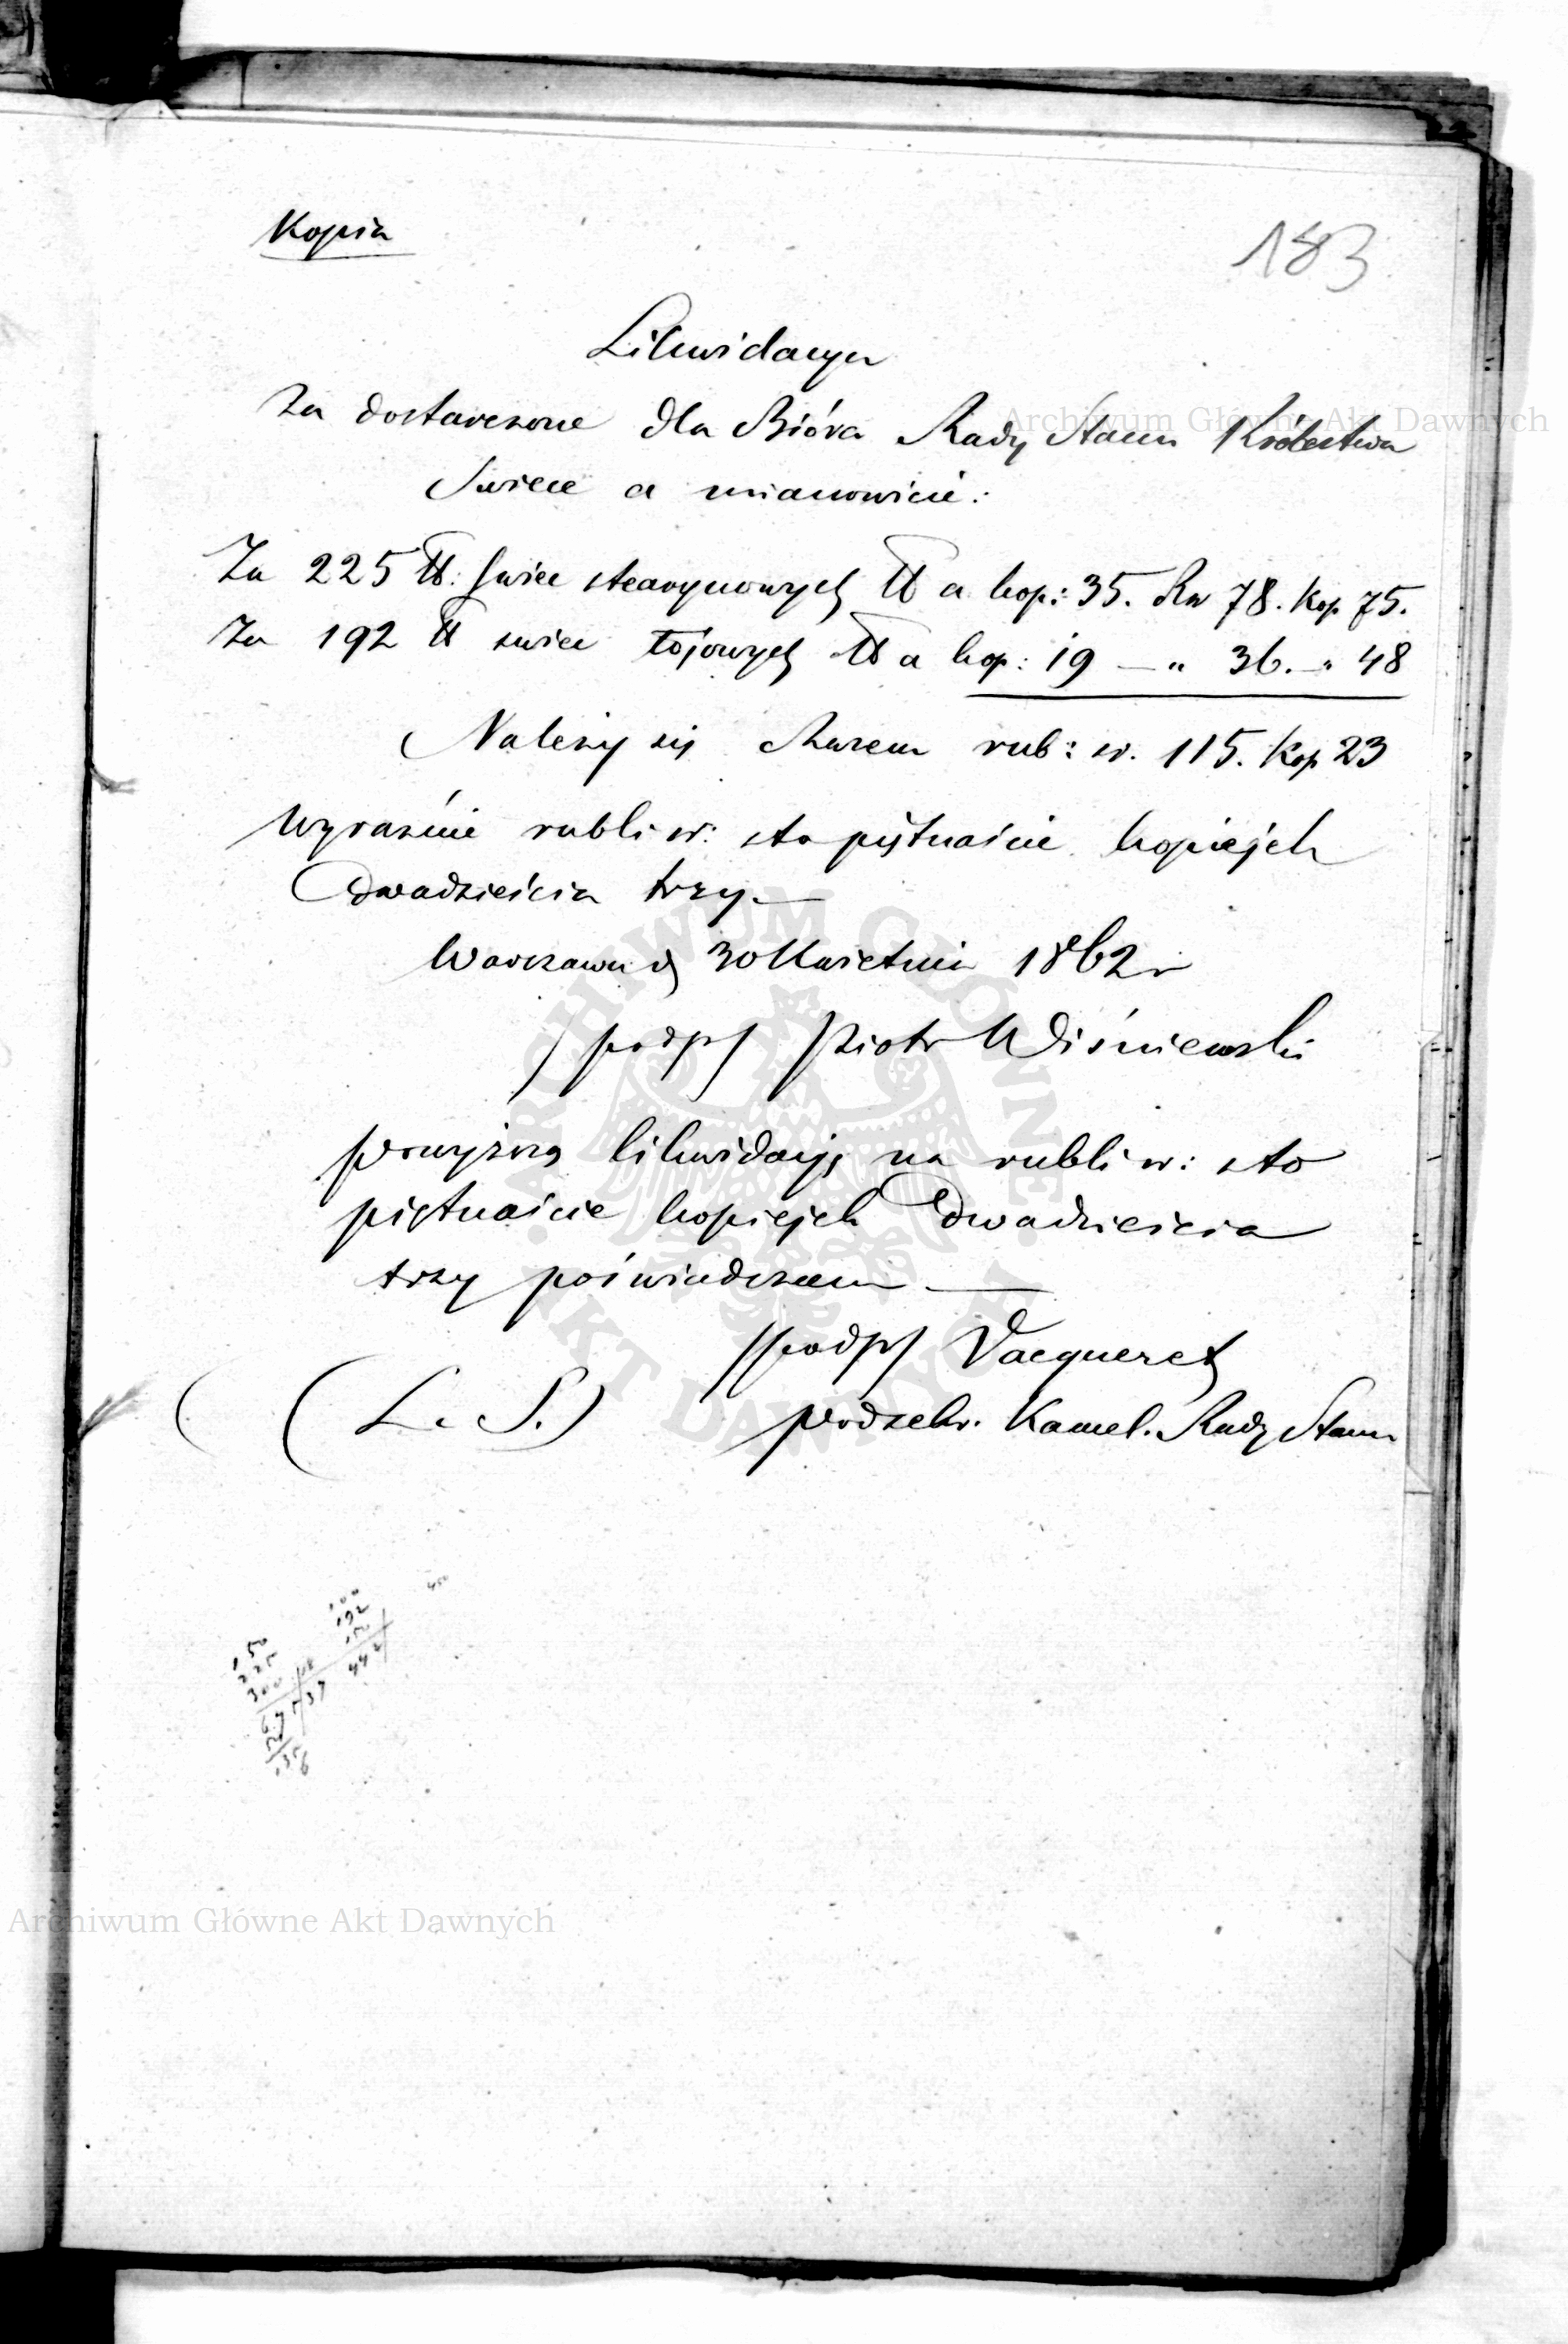 Kopia
183
Likwidacya
Za dostarczone dla Bióra Rady Stanu Królestwa
Swiece a mianowicie:
Za 225 ℔: swiec stearynowych ℔ a kop: 35. Rs 78. Kop 75.
Za 192 ℔ swiec łojowych ℔ a kop: 19 — " 36. — " 48
Należy się Razem rub: sr. 115. Kop 23
Wyraźnie rubli sr: sto piętnaście kopiejek
dwadzieścia trzy. —
Warszawa d 30 Kwietnia 1862 r
/podp/ Piotr Wiśniewski
Powyższą likwidacyę na rubli sr: sto
piętnaście kopiejek dwadzieścia
trzy poświadczam —
/podp/ Vacqueret
(L. S.) Podsekr. Kancel. Rady Stanu
Archiwum Główne Akt Dawnych
Archiwum Główne Akt Dawnych
ARCHIWUM GŁÓWNE AKT DAWNYCH